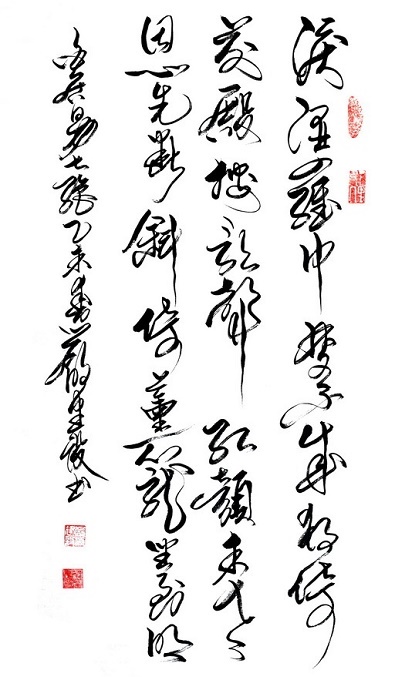 淚濕羅巾夢不成夜深
前殿按歌聲紅顏未老
恩先斷斜倚薰籠坐到明
白居易七絕乙未春書